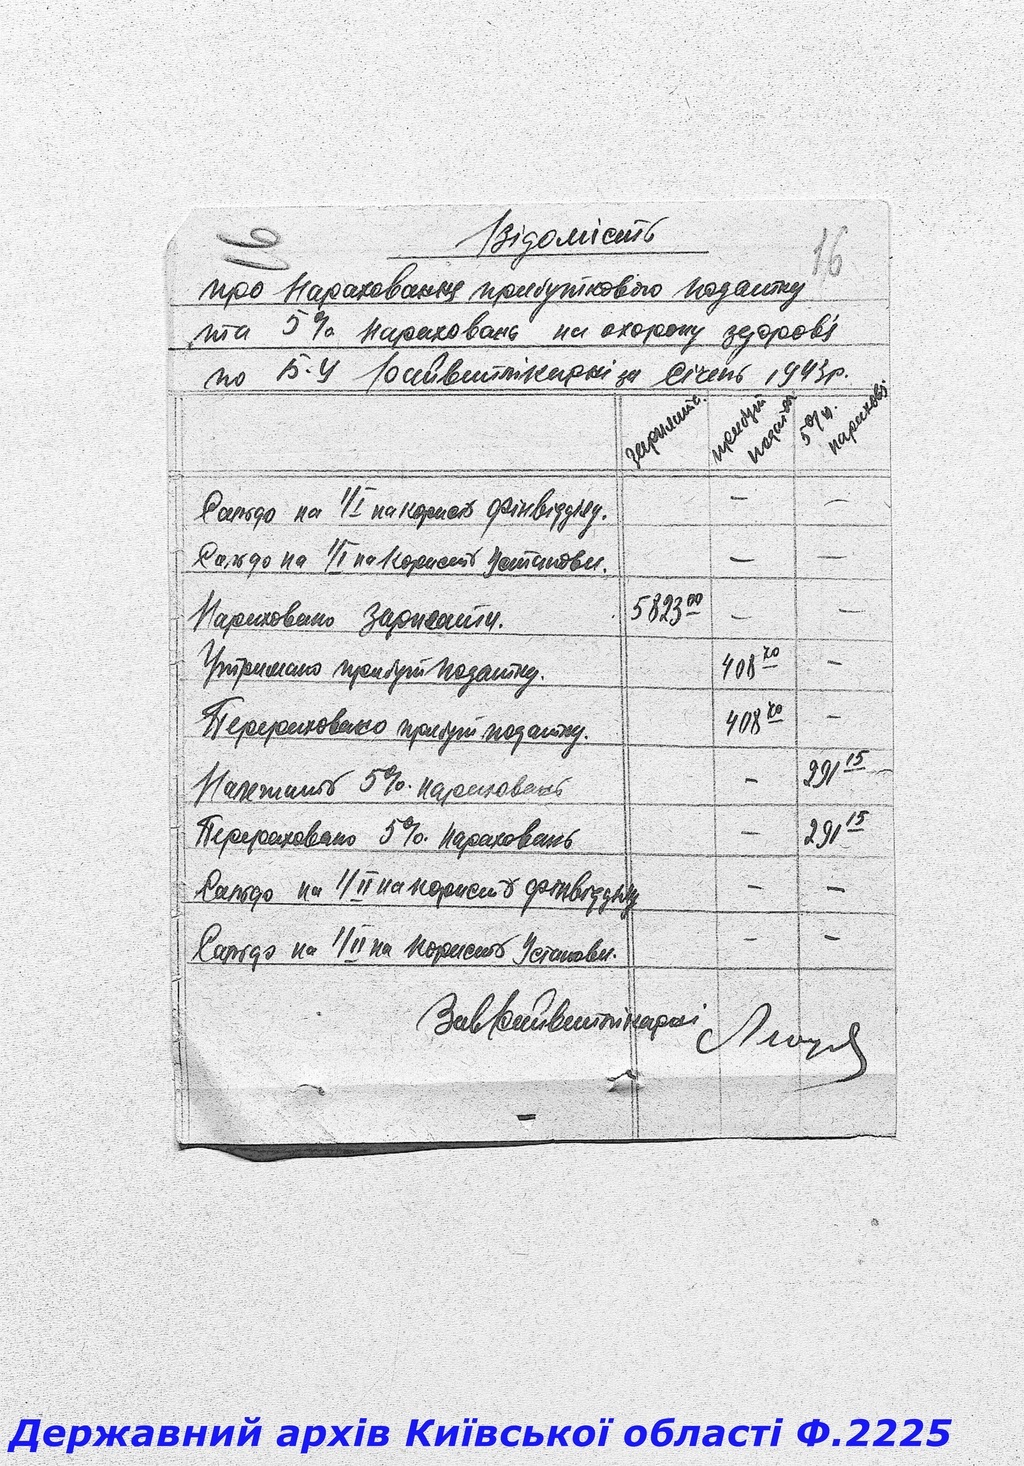 16
Відомість
16
про Нарахування прибуткового податку
та 5% Нарахувань на охорону здоров'я
по Б-Ц Райветлікарні за Січень 1943р.
зарплати. прибут податок 5% нарахован
Сальдо на 1/I на користь фінвідділу. — —
Сальдо на 1/I на користь Установи. — —
Нараховано Зарплати. 5823 00 — —
Утримано прибут податку. 408 70 —
Перераховано прибут податку. 408 70 —
Належить 5% нарахувань — 291 15
Перераховано 5% нарахувань — 291 15
Сальдо на 1/II на користь фінвідділу — —
Сальдо на 1/II на користь Установи. — —
Зав Райветлікарні
Державний архів Київської області Ф.2225